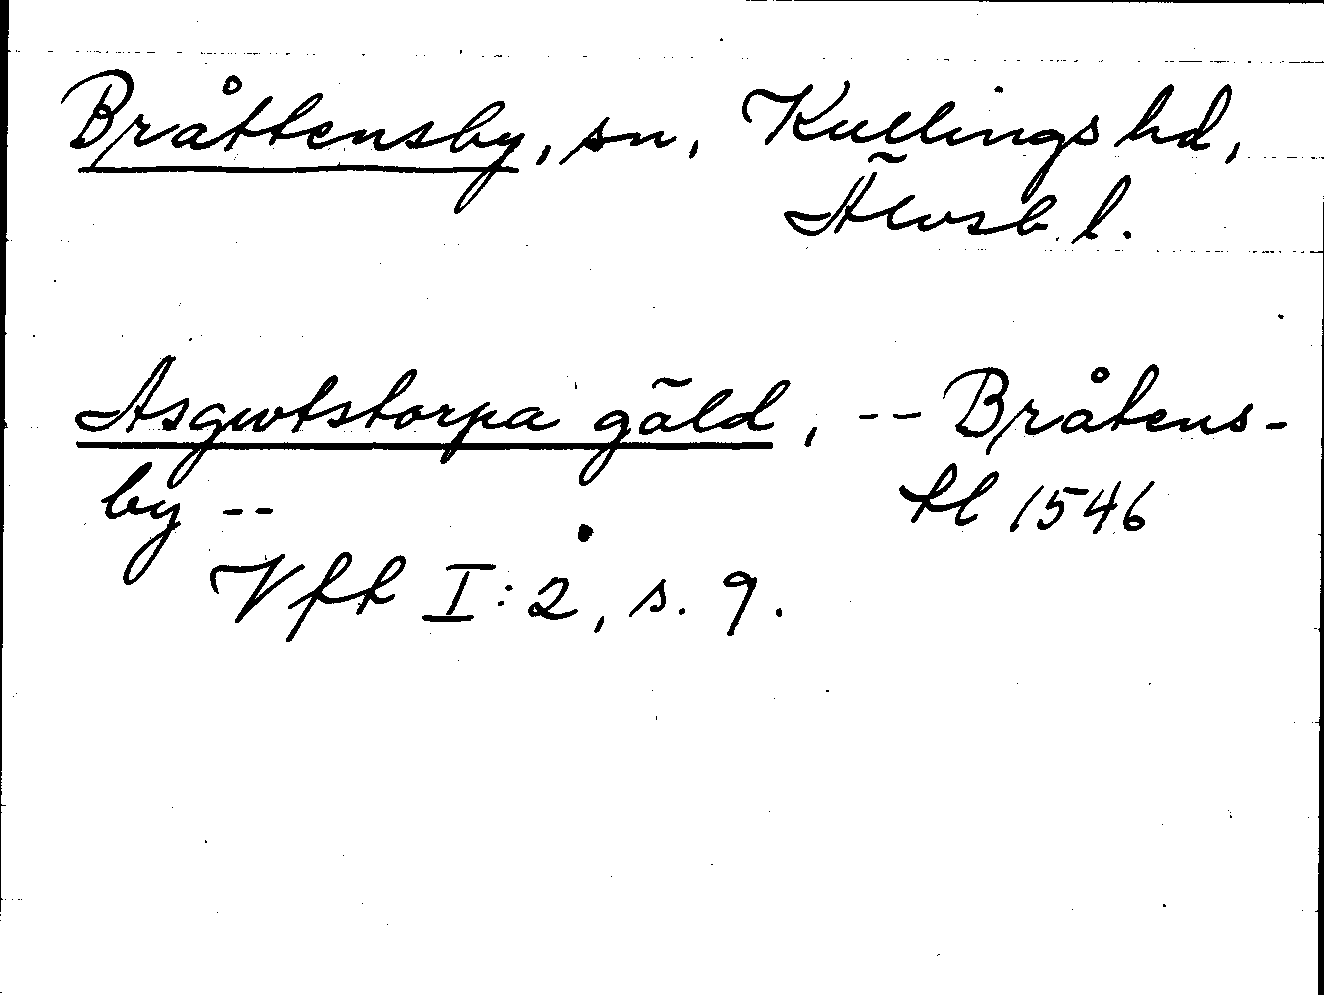 Bråttensby, sn, Kullings hd,
Älvsb. l.
Asgwtstorpa gäld, -- Bråtens-
by -- tl 1546
Vfk I:2, s. 9.